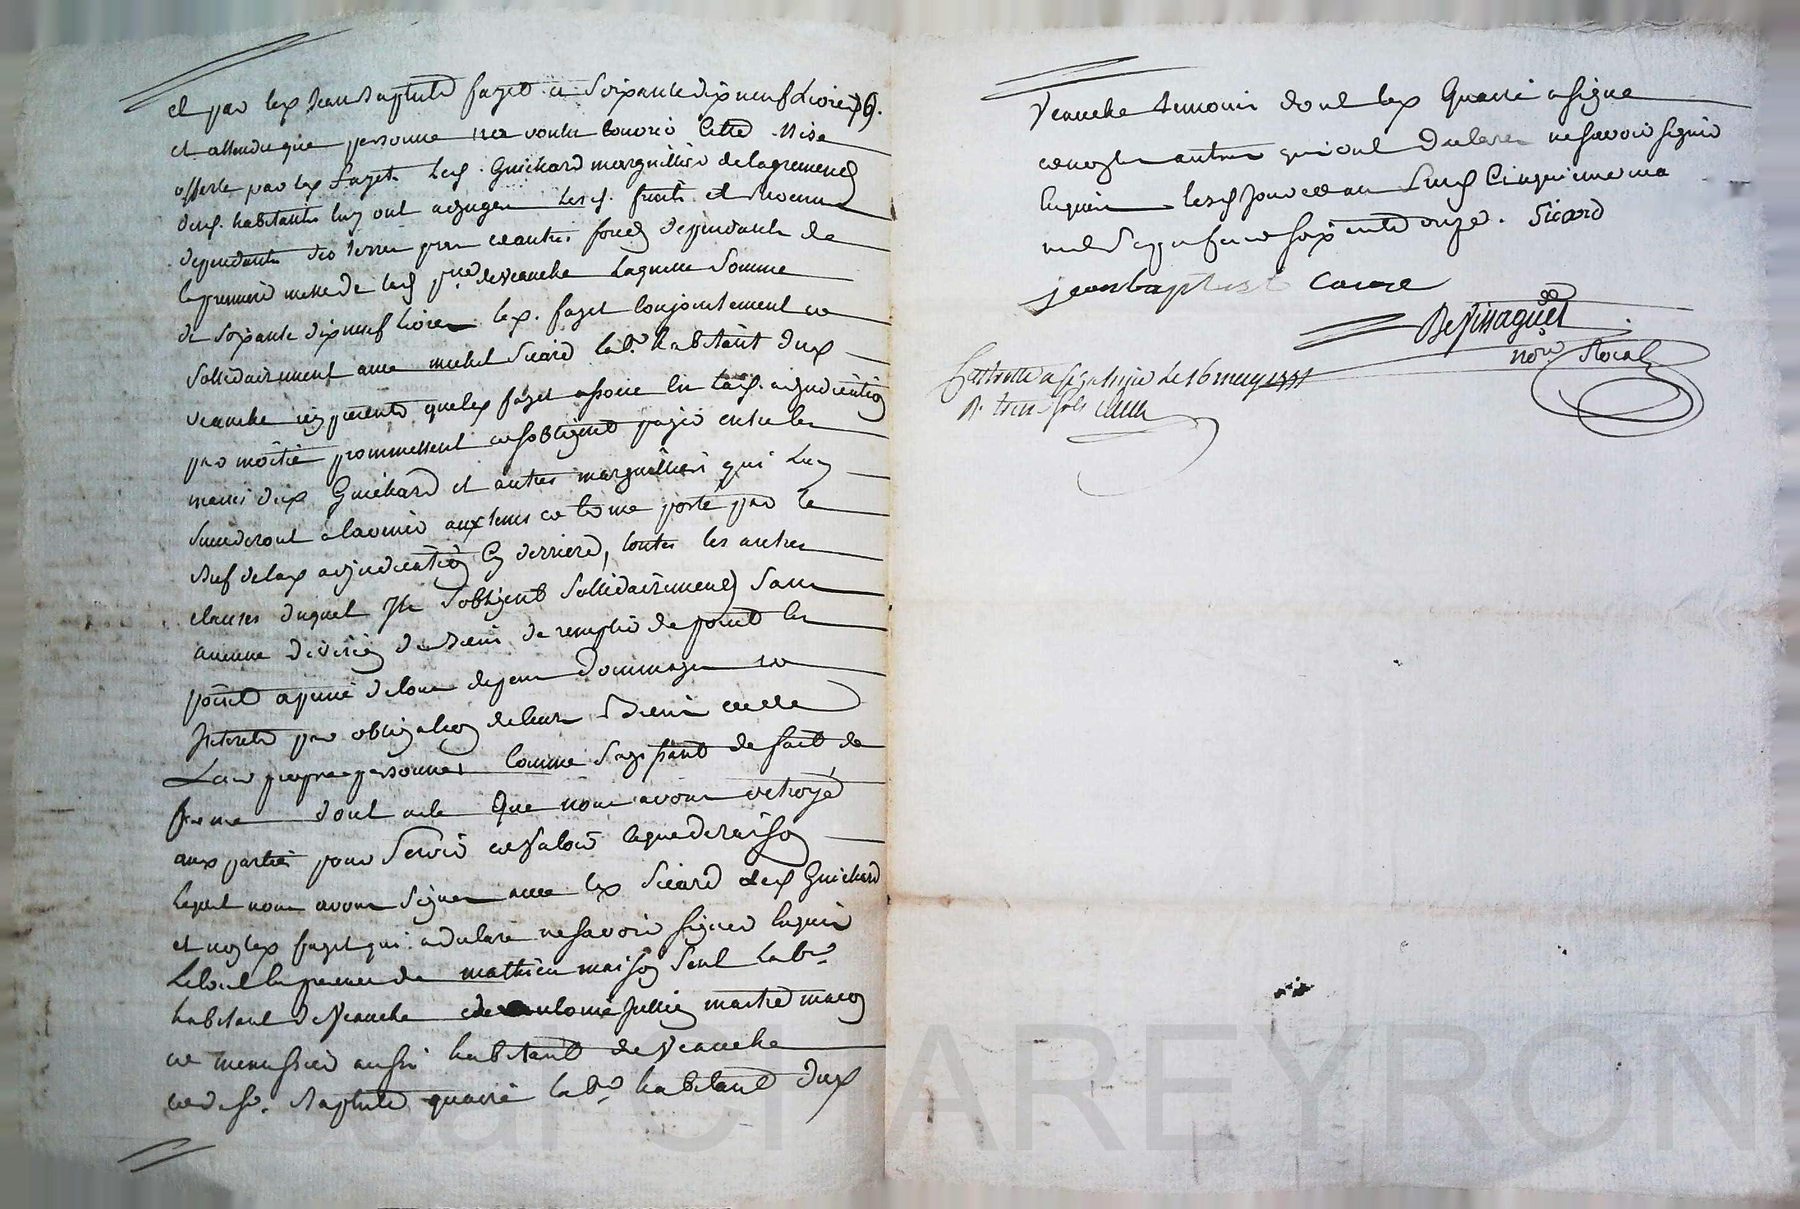 et par led. Jean Baptiste fayet a soixante dix neuf Livres 79.
et attendu que personne n'a voulu couvrir Cette Mise
offerte par led. fayet Led. Guichard marguillier de lad.
habitants luy ont adjugé Lesd. fruits et Revenus
dependants des terres prés et autres fonds dependants de
la premiere messe de lad. pse de veauche Laquelle Somme
de soixante dix neuf Livres led. fayet conjointement et
sollidairement avec michel Sicard labr. habitant dud.
veauche icy present que led. fayet associe en lad. adjudication
par moitié promettent et s'obligent payer entre les
mains dud. Guichard et autres marguilliers qui Luy
succederont a l'avenir aux tems et terme porté par le
de lad. adjudication Cy derriere, toutes les autres
clauses duquel Ils s'obligent sollidairement sans
aucune division de Biens de remplir de point en
point a peine de tous depens dommages et
Interets par obligation de leurs Biens et de
Leur propre personnes comme s'agissant de fait de
ferme dont acte Que nous avons octroyé
aux parties pour Servir et valoir ce que de raison
Lequel nous avons signé avec led. Sicard Guichard
et non led. fayet qui a declaré ne savoir signer Enquis
Le tout En presence de mathieu maison Labr.
habitant de Veauche et de antoine Jullien maitre maçon
et menuisier aussi habitant de Veauche
et de Sr. Baptiste quarré labr. habitant dud.
Veauche temoins dont led. Quarré a signé
et non les autres qui ont declaré ne savoir signer
Enquis lesd. Jour et an Susd. Cinquieme mai
mil sept cent soixante onze. Sicard
jean baptiste carre
De Pissaguel
nore Royal
Controllé a le 16 may 1771
R. treize sols
CHAREYRON